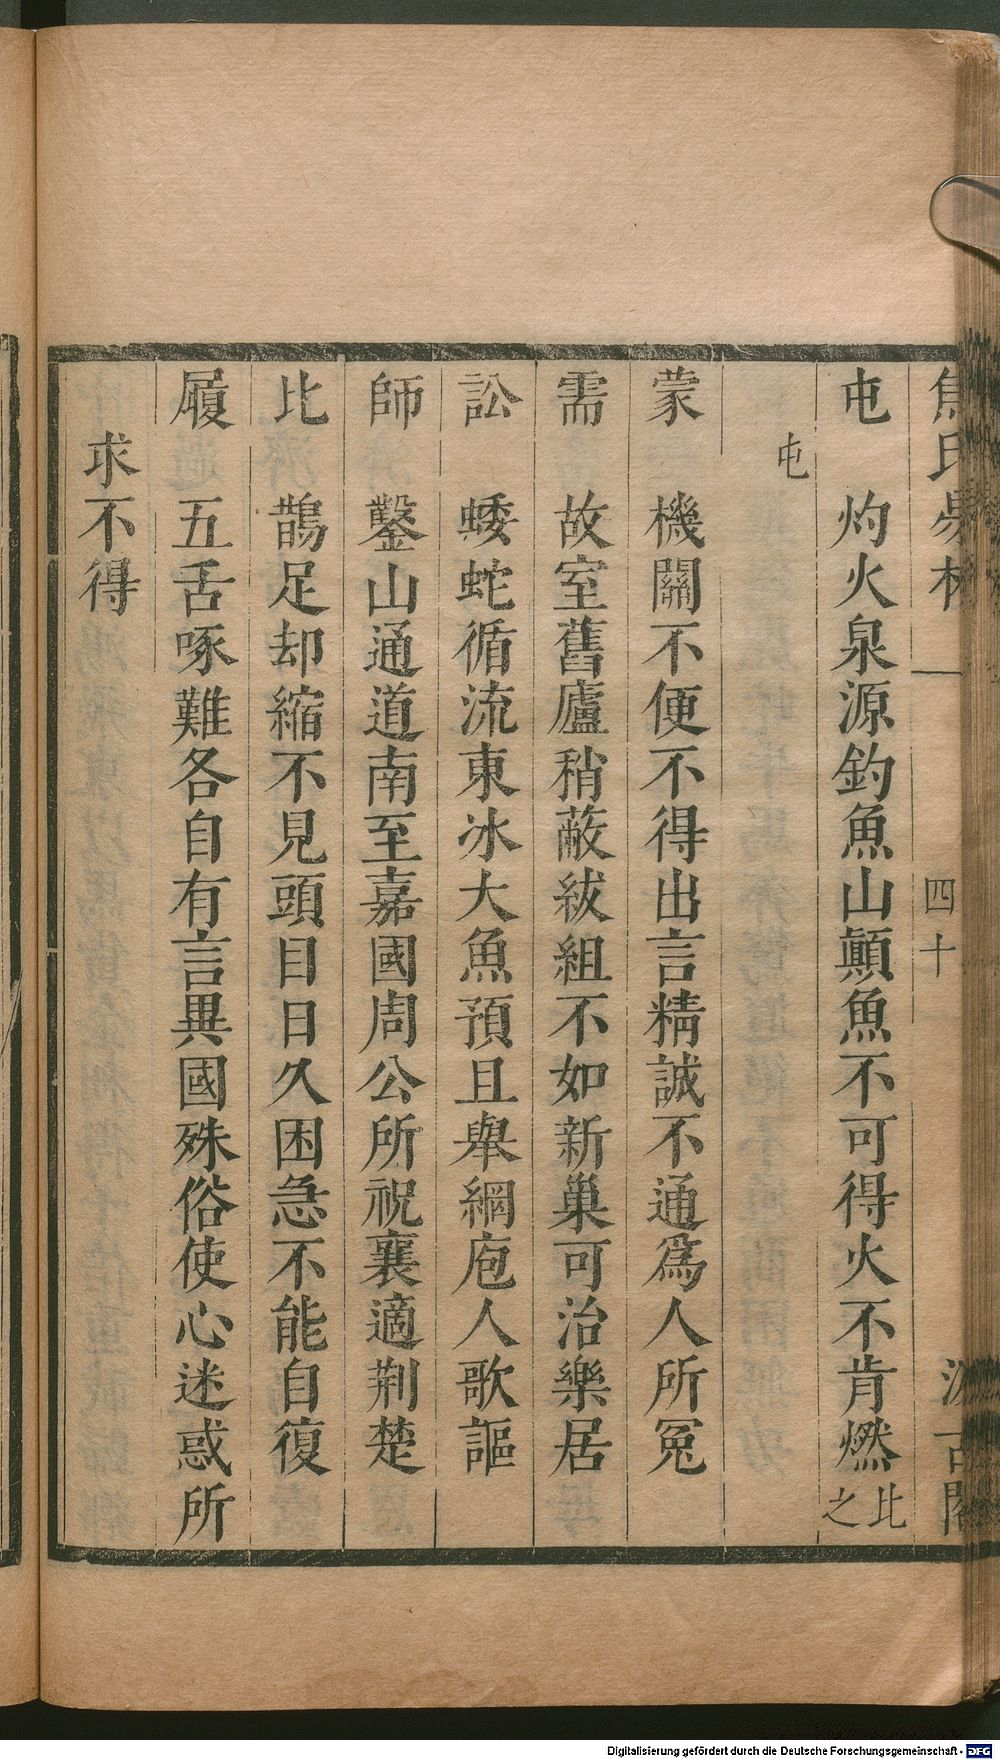 焦氏易林 一 四十 汲古閣
屯 灼火泉源釣魚山顛魚不可得火不肯燃比之
屯
蒙 機關不便不得出言精誠不通爲人所寃
需 故室舊廬稍蔽紱組不如新巢可治樂居
訟 蜲蛇循流東冰大魚預且舉網庖人歌謳
師 鑿山通道南至嘉國周公所祝襄適荆楚
比 鵲足却縮不見頭目日久困急不能自復
履 五舌啄難各自有言異國殊俗使心迷惑所
求不得
Digitalisierung gefördert durch die Deutsche Forschungsgemeinschaft - DFG